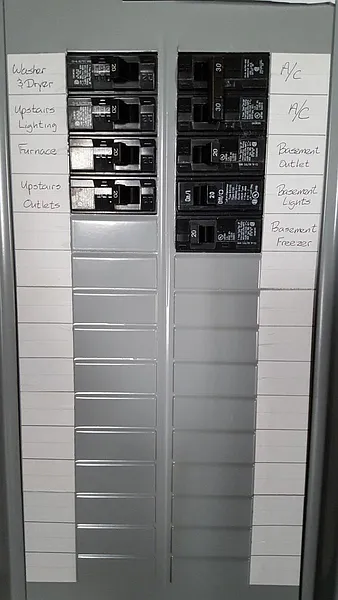 Washer
& Dryer
20
30
A/C
Upstairs
Lighting
20
30
A/C
Furnace
20
20
Basement
Outlet
Upstairs
Outlets
20
20
Basement
Lights
20
Basement
Freezer